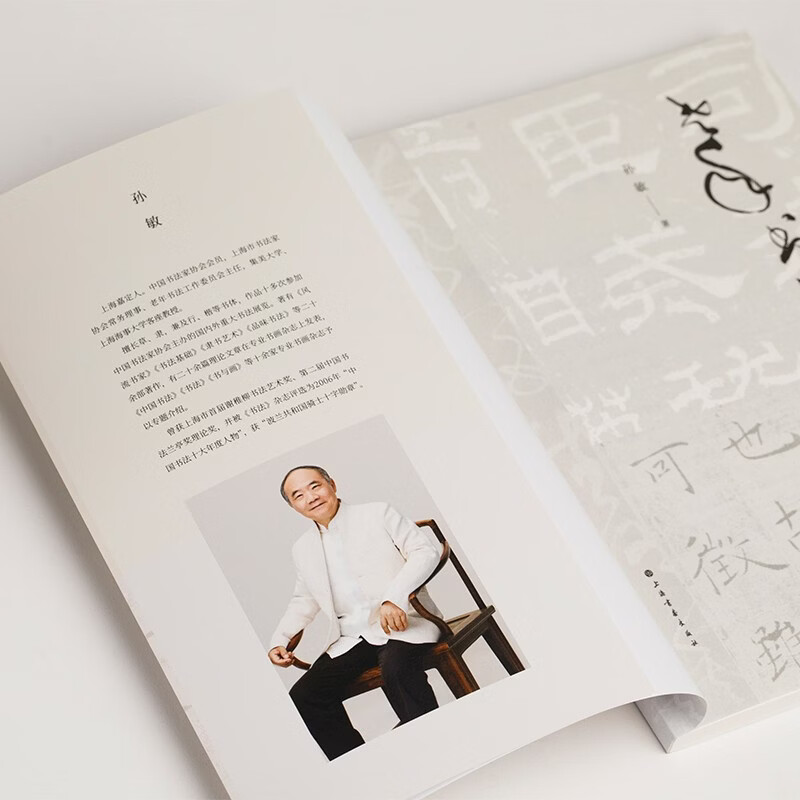 孙
敏
上海嘉定人。中国书法家协会会员,上海市书法家
协会常务理事、老年书法工作委员会主任,集美大学、
上海海事大学客座教授。
擅长草、隶,兼及行、楷等书体,作品十多次参加
中国书法家协会主办的国内外重大书法展览。著有《风
流书家》《书法基础》《隶书艺术》《品味书法》等二十
余部著作,有二十余篇理论文章在专业书画杂志上发表。
《中国书法》《书法》《书与画》等十余家专业书画杂志予
以专题介绍。
曾获上海市首届谢稚柳书法艺术奖、第二届中国书
法兰亭奖理论奖,并被《书法》杂志评选为2006年“中
国书法十大年度人物”,获“波兰共和国骑士十字勋章”。
孙敏——著
里
可
也
故
徵
雖
上海书画出版社